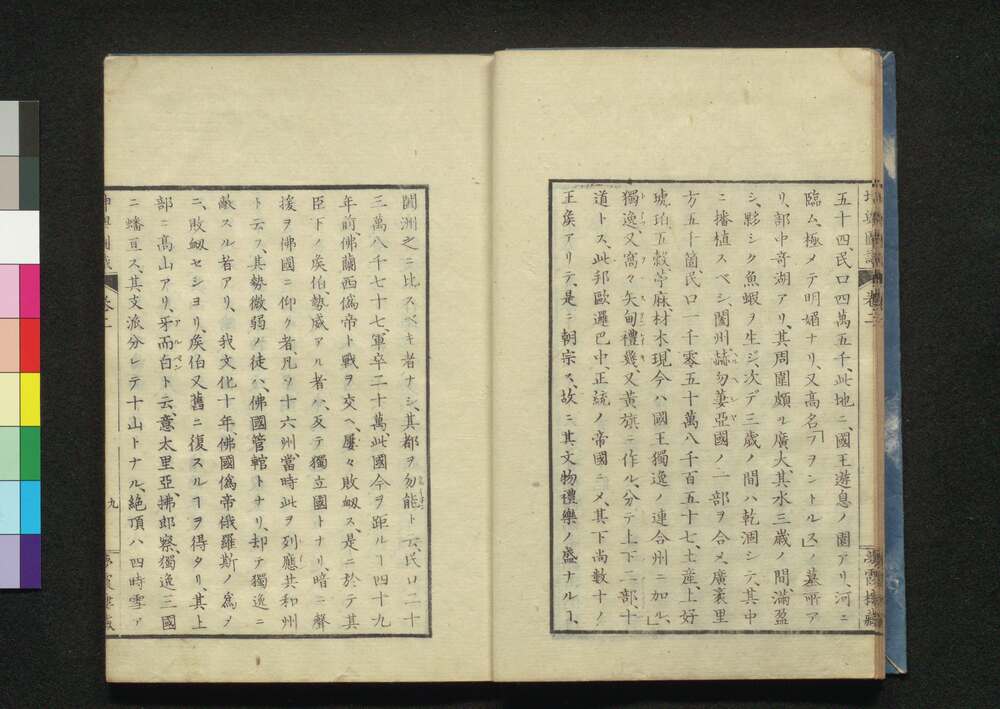 五十四、民口四萬五千、此地ニ、國王遊息ノ園アリ、河ニ
臨ム極メテ明媚ナリ、又高名「フヲントルス」ノ墓所ア
リ、部中奇湖アリ、其周圍頗ル廣大其水三歳ノ間満盈
シ、夥シク魚蝦ヲ生ジ、次デ三歳ノ間ハ乾涸シテ、其中
ニ播植スベシ、閣州歇勿萋亞國ノ一部ヲ合メ廣袤里
方五千箇、民口一千零五十萬八千百五十七、土産上好
琥珀五穀苧麻、材木現今ハ國王獨逸ノ連合州ニ加ル、
獨逸、又窩々矢甸禮幾、又黄旗ニ作ル、分テ上下二部、十
道トス、此邦歐邏巴中、正統ノ帝國ニメ、其下尚數十ノ
王矦アリテ、是ニ朝宗ス、故ニ其文物禮樂ノ盛ナルヿ、
闔洲之ニ比スベキ者ナシ、其都ヲ勿能ト云、民口二十
三萬八千七十七、軍卒二十萬此國今ヲ距ルヿ四十九
年前、佛蘭西僞帝ト戰ヲ交ヘ、屢々敗衂ス、是ニ於テ其
臣下ノ矦伯勢威アル者ハ、反テ獨立國トナリ、暗ニ聲
援ヲ佛國ニ仰ク者、凡ソ十六州、當時此ヲ列應共和州
ト云フ、其勢微弱ノ徒ハ、佛國管轄トナリ、却テ獨逸ニ
敵スル者アリ、我文化十年、佛國僞帝俄羅斯ノ為メ
ニ、敗衂セショリ、矦伯又舊ニ復スルヿヲ得タリ、其上
部ニ高山アリ、牙而白ト云、意太里亞、拂郎察、獨逸三國
ニ蟠亘ス、其支派分レテ十山トナル、絶頂ハ四時雪ア
九